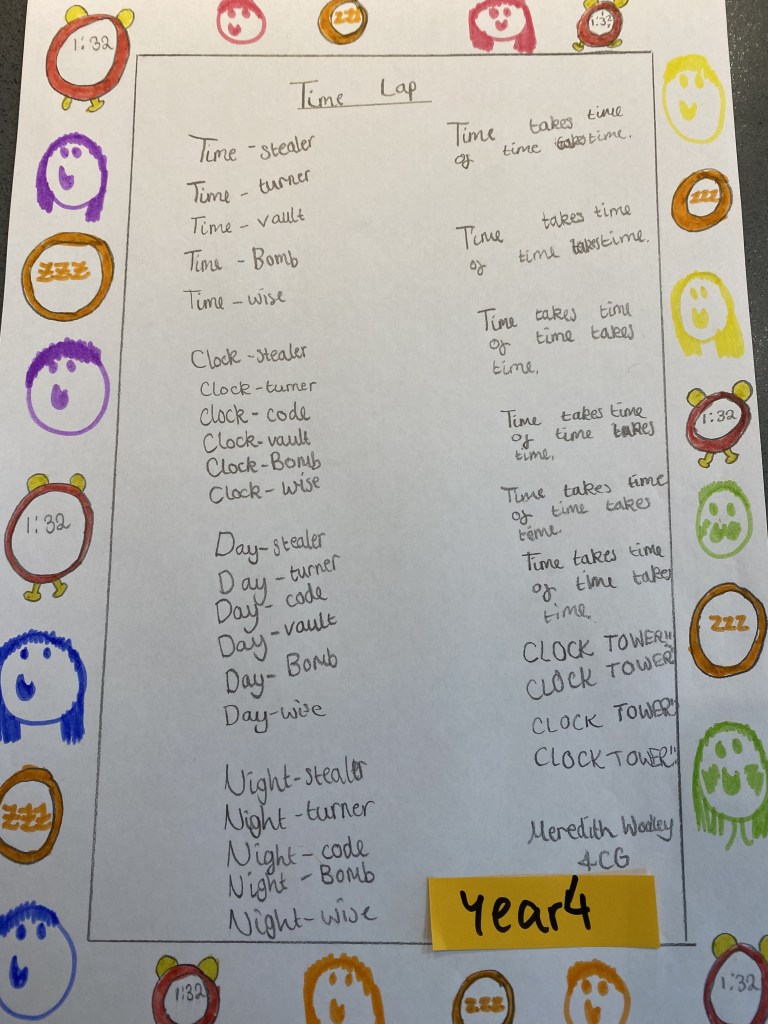 Time Lap
Time - stealer
Time - turner
Time - vault
Time - Bomb
Time - wise
Clock - stealer
Clock - turner
Clock - code
Clock - vault
Clock - Bomb
Clock - wise
Day - stealer
Day - turner
Day - code
Day - vault
Day - Bomb
Day - wise
Night - stealer
Night - turner
Night - code
Night - Bomb
Night - wise
Time takes time
of time takes time.
Time takes time
of time takes time.
Time takes time
of time takes
time.
Time takes time
of time takes
time.
Time takes time
of time takes
time
Time takes time
of time takes
time.
CLOCK TOWER!!
CLOCK TOWER
CLOCK TOWER!!
CLOCK TOWER!!
Meredith Woolley
4CG
Year 4
1:32
zzz
1:32
zzz
1:32
zzz
1:32
zzz
1:32
zzz
1:32
zzz
1:32
zzz